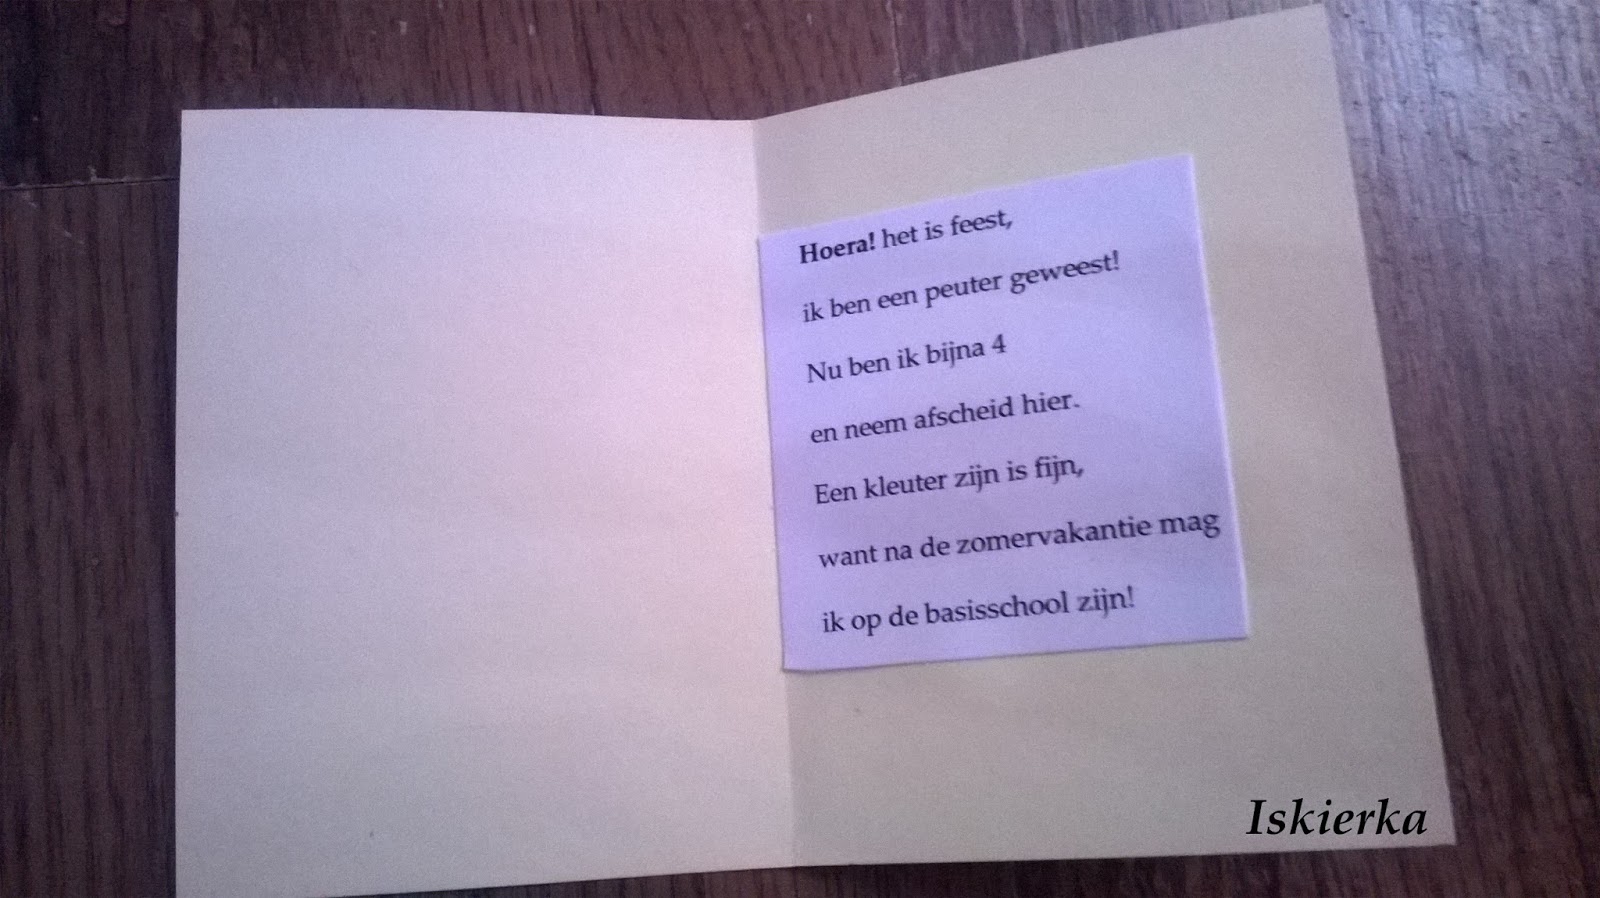 Hoera! het is feest,
ik ben een peuter geweest!
Nu ben ik bijna 4
en neem afscheid hier.
Een kleuter zijn is fijn,
want na de zomervakantie mag
ik op de basisschool zijn!
Iskierka